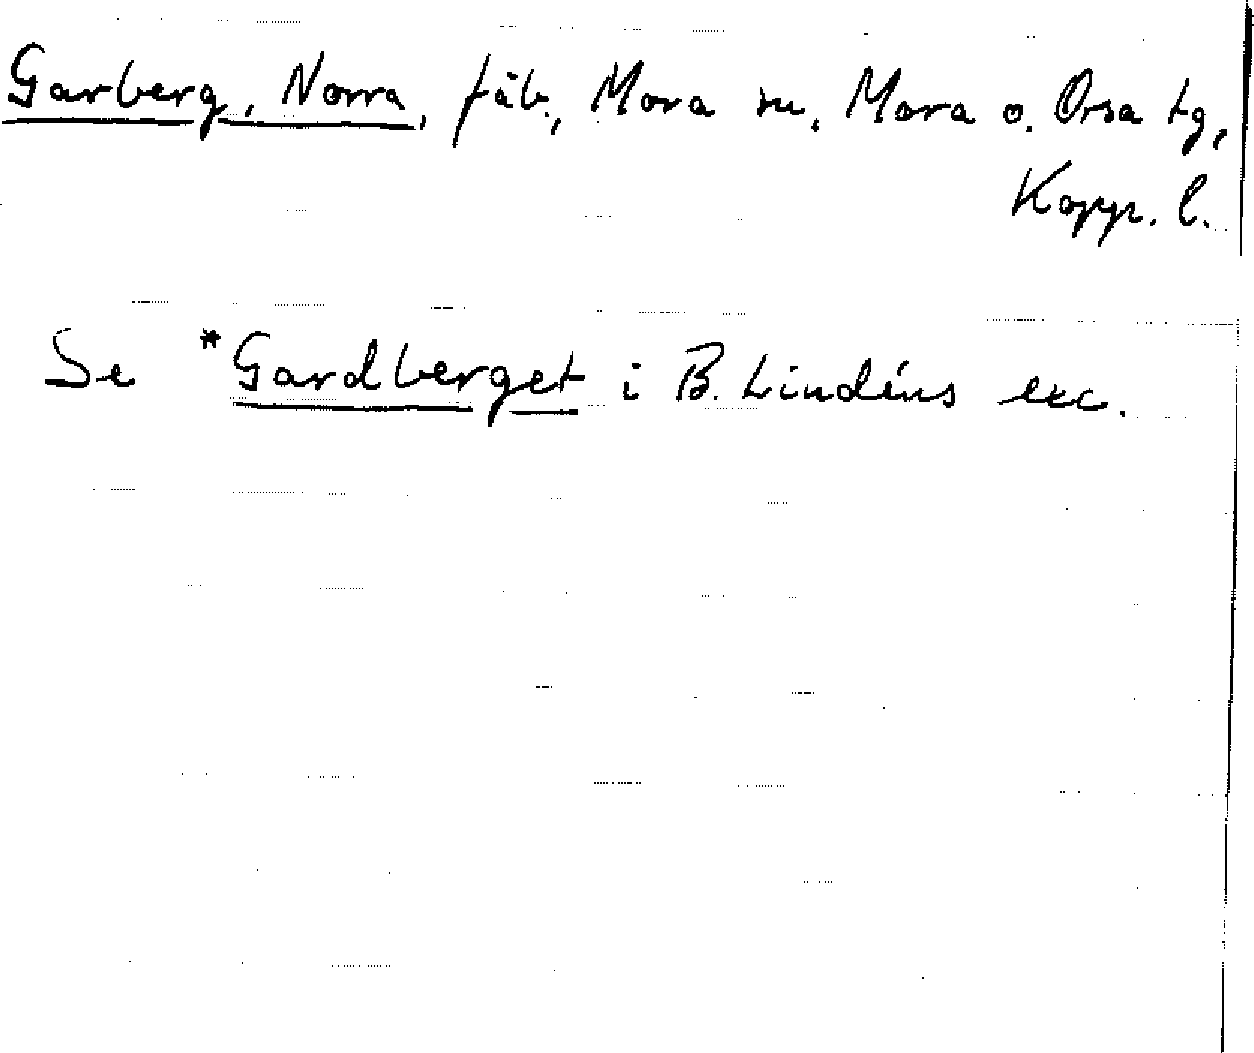 Garberg, Norra, fäb., Mora sn, Mora o. Orsa tg,
Kopp. l.
Se *Gardberget i B. Lindéns exc.